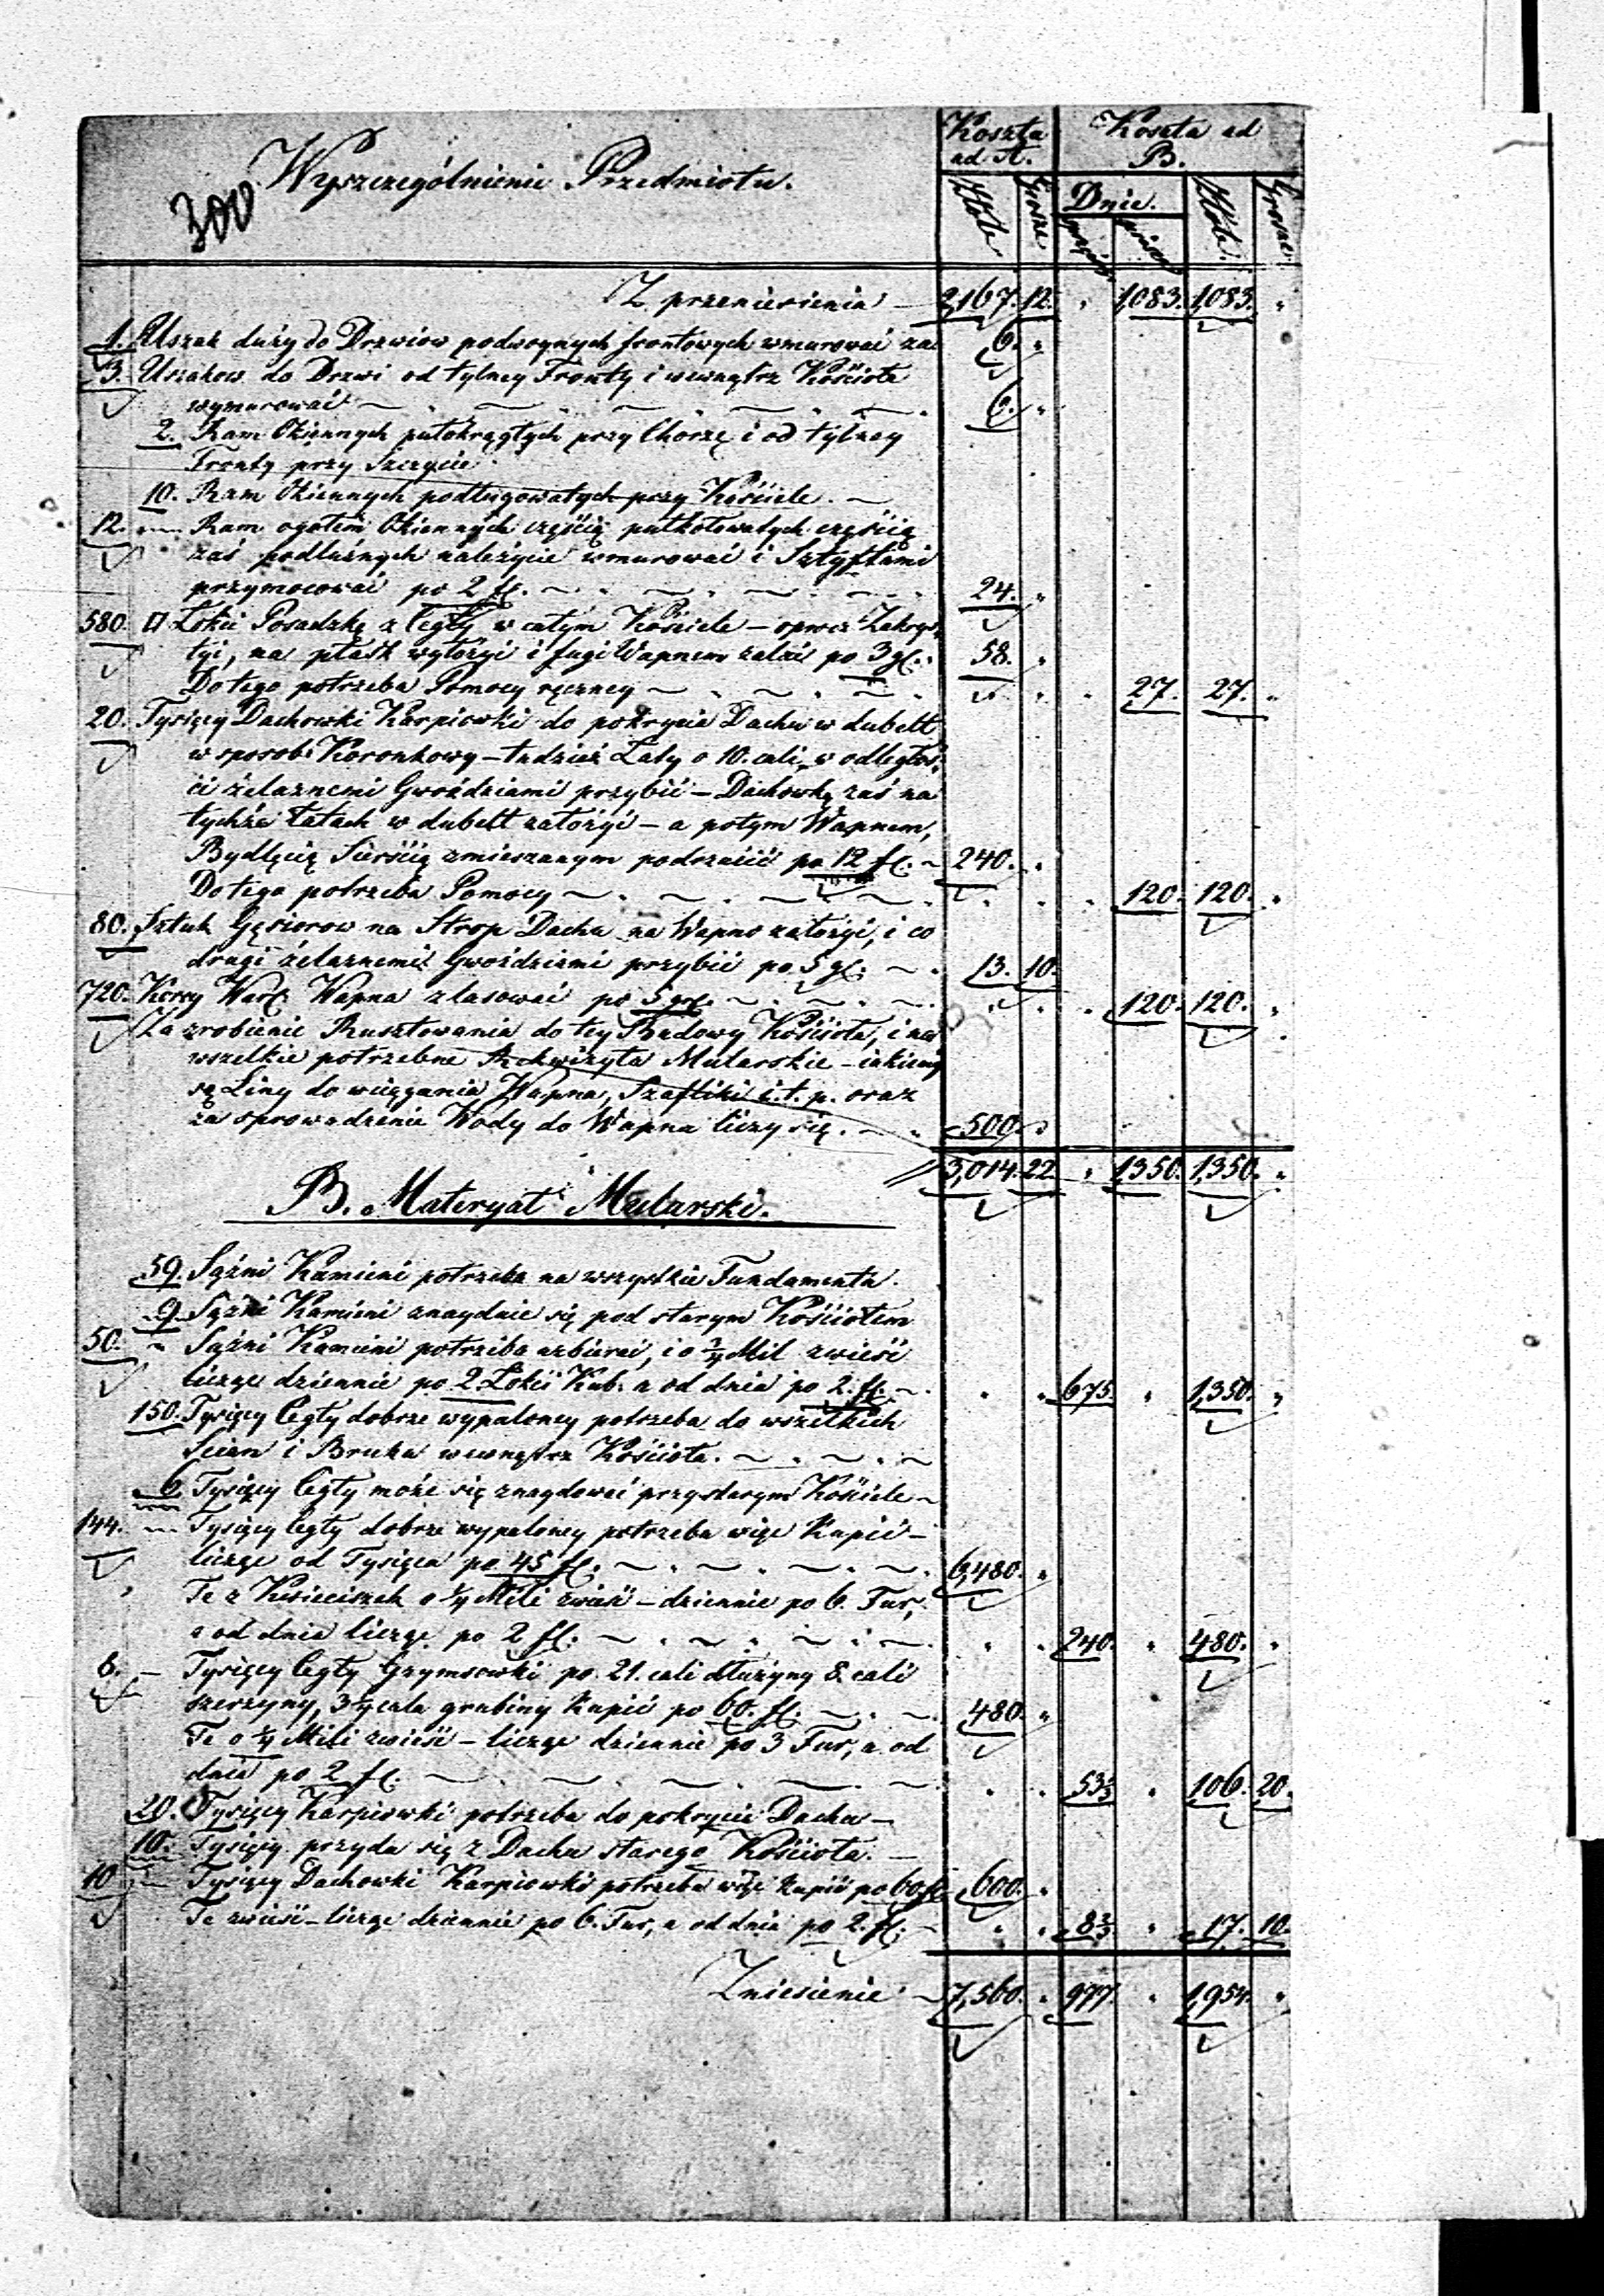 Wyszczególnienie Przedmiotu.
300
Koszta ad A.
Koszta ad B.
Złote
Grosze
Dnie.
Złote
Grosze
Z przeniesienia — 2,167. 12. " 1083. 1,083. "
1. Uszak duży do Drzwiow podwoynych frontowych wmurować za 6. "
3. Uszakow do Drzwi od tylney Fronty i wewnątrz Kościoła
wmurować 6. "
2. Ram Okiennych putokrągłych przy Chorze i od tylney
Fronty przy Szczycie
10. Ram Okiennych podługowatych przy Kościele. —
12. — Ram ogołem Okiennych częścią putkołowatych częścią
zaś podłużnych należycie wmurować i Sztyftami
przymocować po 2 fl. 24. "
580. □ Łokci Posadzkę z Cegły w całym Kościele — oprocz Zakrys-
tyi, na płask wyłożyć i fugi Wapnem zalać po 3 gl. 58. "
Do tego potrzeba Pomocy ręczney " " " 27. 27. "
20. Tysięcy Dachowki Karpiowki do pokrycia Dachu w dubelt
w sposob Koronkowy — tudzież Łaty o 10. cali w odległoś-
ci żelaznemi Gwoździami przybić — Dachowkę zaś na
tychże Łatach w dubelt założyć — a potym Wapnem,
Bydlęcią Sierścią zmieszanym podrzucić po 12 fl. — 240. "
Do tego potrzeba Pomocy " " " 120. 120. "
80. Sztuk Gąsiorow na Strop Dachu na Wapno założyć, i co
drugi żelaznemi Gwoździami przybić po 5 gl. 13. 10.
720. Korcy War. Wapna zlasować po 5 gr. " " " 120. 120. "
Za zrobienie Rusztowania do tey Budowy Kościoła, i na
wszelkie potrzebne Rekwizyta Mularskie — iakiemi
są Liny do wiągania Wapna, Szafliki i.t.p. oraz
za sprowadzenie Wody do Wapna liczy się. 500. "
3,014. 22. " 1,350. 1,350. "
B. Materyał Mularski.
59. Sążni Kamieni potrzeba na wszystkie Fundamenta.
9. Sążni Kamieni znaydzie się pod starym Kościołem
50. " Sążni Kamieni potrzeba uzbierać, i o ¾ Mil zwieść
licząc dziennie po 2. Łokci Kub. a od dnia po 2. fl. " " 675. " 1,350. "
150. Tysięcy Cegły dobrze wypaloney potrzeba do wszelkich
Scian i Bruku wewnątrz Kościoła.
6 Tysięcy Cegły może się znaydować przy starym Kościele
144. — Tysięcy Cegły dobrze wypaloney potrzeba więc Kupić —
licząc od Tysięca po 45 fl. 6,480. "
Te z o ¼ Mili zwieść — dziennie po 6. Fur,
a od dnia licząc po 2 fl. " " 240. " 480. "
8. — Tysięcy Cegły Gzymsowki po 21. cali dłużyny 8. cali
szerzyny, 3 ½ cala grubiny Kupić po 60. fl. 480. "
Te o ¼ Mili zwieść — licząc dziennie po 3 Fur, a od
dnia po 2 fl. " " 53⅓ " 106. 20.
20. Tysięcy Karpiowki potrzeba do pokrycia Dachu —
10. Tysięcy przyda się z Dachu starego Kościoła. —
10 — Tysięcy Dachowki Karpiowki potrzeba więc Kupić po 60 fl. 600. "
Te zwieść — licząc dziennie po 6. Fur, a od dnia po 2. fl. " " 8⅔ " 17. 10.
Zniesienie — 7,560. " 977. " 1,954. "